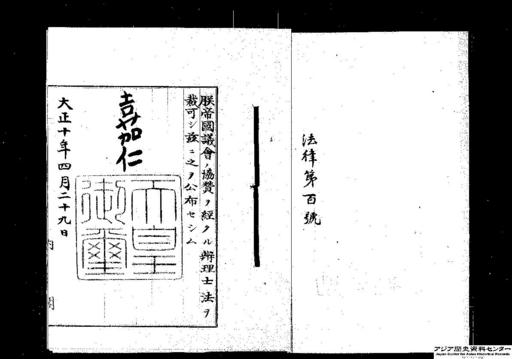 法律第百號
朕帝國議會ノ協賛ヲ經タル辨理士法ヲ
裁可シ茲ニ之ヲ公布セシム
嘉仁
天皇
御璽
大正十年四月二十九日
アジア歴史資料センター
Japan Center for Asian Historical Records